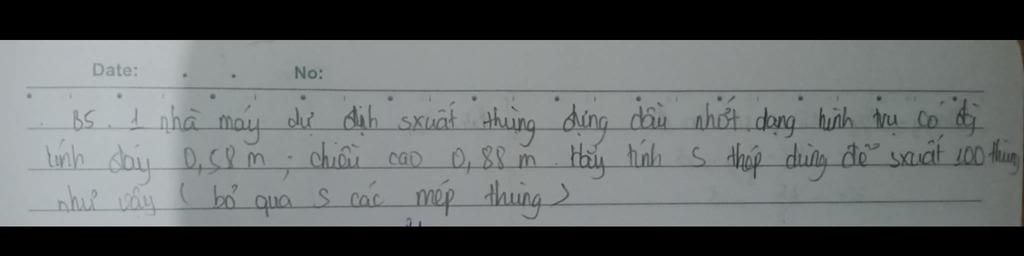 Date: No:
B5. 1 nhà máy dự định sxuất thùng đựng dầu nhớt dạng hình trụ có đg
kính đáy 0,58 m, chiều cao 0,88 m. Hãy tính S thép dùng để sxuất 100 thùng
như vậy (bỏ qua S các mép thùng)